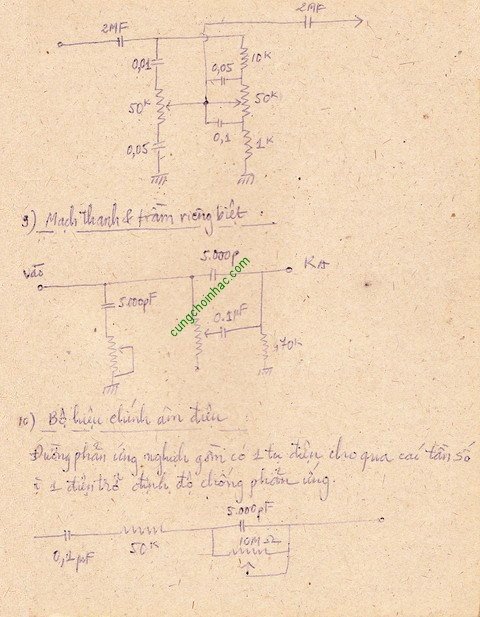 2MF
2MF
0,01
0,05
10K
50K
50K
0,05
0,1
1K
9) Mạch thanh & trầm riêng biệt
vào
5.000p
RA
5.000pF
0.1µF
470K
cungchoinhac.com
10) Bộ hiệu chính âm điệu
Đường phản ứng nghịch gồm có 1 tụ điện cho qua các tần số
1 điện trở định độ chống phản ứng.
5.000pF
50K
10MΩ
0,1µF